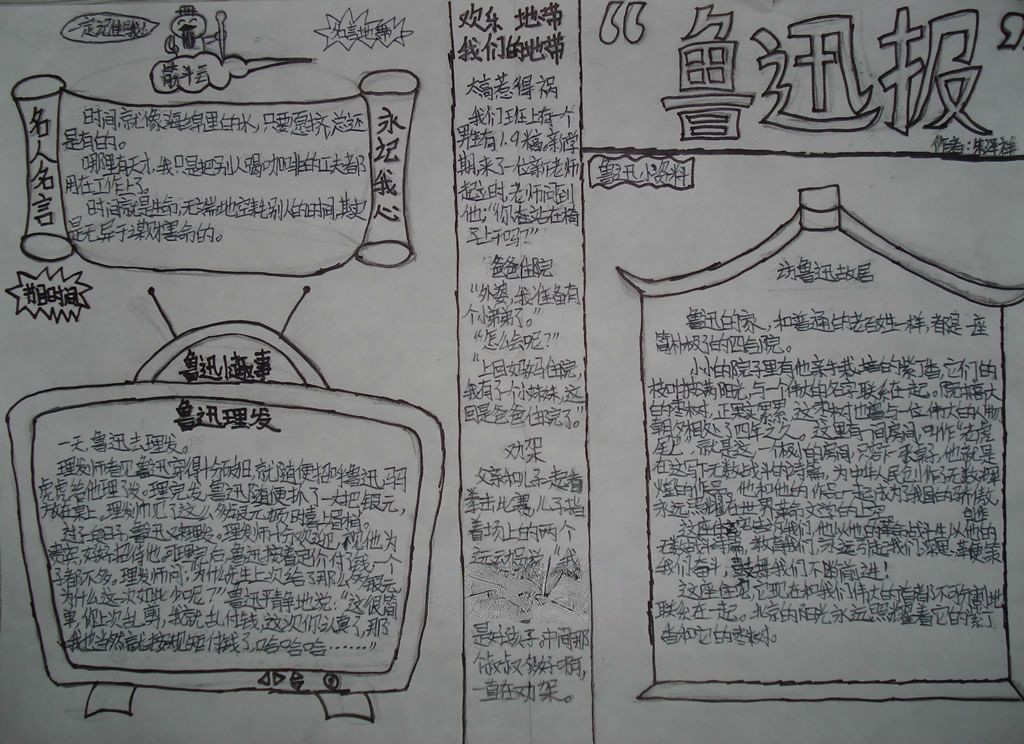 一定记住哦！
名言地带
筋斗云
名人名言
永记我心
时间就像海绵里的水，只要愿挤，总还
是有的。
哪里有天才，我只是把别人喝咖啡的工夫都
用在工作上了。
时间就是生命，无端地空耗别人的时间，其实
是无异于谋财害命的。
时间
鲁迅小趣事
鲁迅理发
一天，鲁迅去理发。
理发师看见鲁迅穿得十分破旧，就随便把
虎虎给他理发。理完发，鲁迅随便抓了一大把银元，
放在桌上，理发师见了这么多银元
过了一段日子，鲁迅又来理发。理发师十分欢迎，视他为
贵宾
了都不多，理发师问：为什么先生上次给了那么多银元，
为什么这一次如此少呢？”鲁迅平静地说：“这很简
单，你上次乱剪，我就乱付钱，这次你认真了，那
我也当然就按规矩付钱了哈哈哈……”
欢乐 地带
我们的地带
太高若得祸
我们班上有一个
男生有1.9米高，新学
期，来了一位新老师
起立时，老师问到
他：“你在站在椅
子上干吗？”
爸爸住院
“外婆，我准备有
个小弟弟了。”
“怎么会呢？”
“上回妈妈住院，
我有了个小妹妹，这
回是爸爸住院了。”
劝架
父亲和儿子一起看
拳击比赛，儿子指
着场上的两个
运动员说：“我
是好孩子，中间那
个叔叔多好啊，
一直在劝架。
“鲁迅报”
作者：
鲁迅小资料
访鲁迅故居
鲁迅的家，和普通的老百姓一样，都是一座
简朴的四合院。
小小的院子里有他亲手栽培的紫丁香，它们的
枝叶披满阳光，与一个伟大的名字联系在一起。院中高大
的枣树，正果实累累，这枣树也曾与一位伟大的人物
朝夕相处了四年之久。这里有一间房间，叫作“老虎
尾巴”，就是这一个极小的房间，只有一张桌子，他就是
在这写下无数战斗的诗篇，为中华人民创作了无数辉
煌的作品，他和他的作品一起成为了我国的骄傲，
永远闪耀在世界革命文学的上空。
我们奋斗，鼓舞我们不断前进！
这座住宅它现在和我们伟大的首都不可分割地
联系在一起。北京的阳光永远照耀着它的紫丁
香和它的枣树。